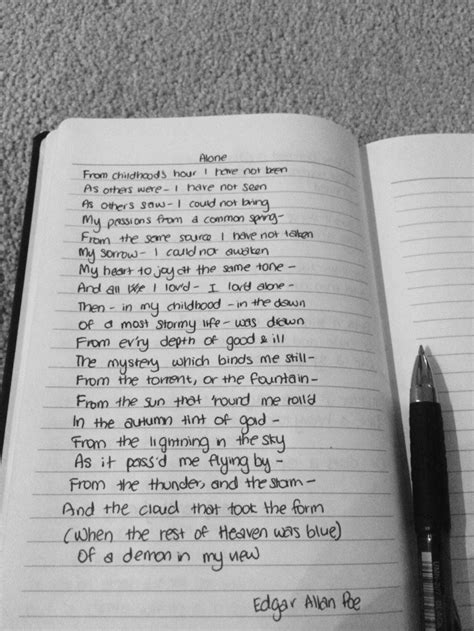 Alone
From childhood's hour I have not been
As others were - I have not seen
As others saw - I could not bring
My passions from a common spring -
From the same source I have not taken
My sorrow - I could not awaken
My heart to joy at the same tone -
And all I lov'd - I lov'd alone -
Then - in my childhood - in the dawn
Of a most stormy life - was drawn
From ev'ry depth of good & ill
The mystery which binds me still -
From the torrent, or the fountain -
From the sun that 'round me roll'd
In the autumn tint of gold -
From the lightning in the sky
As it pass'd me flying by -
From the thunder, and the storm -
And the cloud that took the form
(When the rest of Heaven was blue)
Of a demon in my view
Edgar Allan Poe